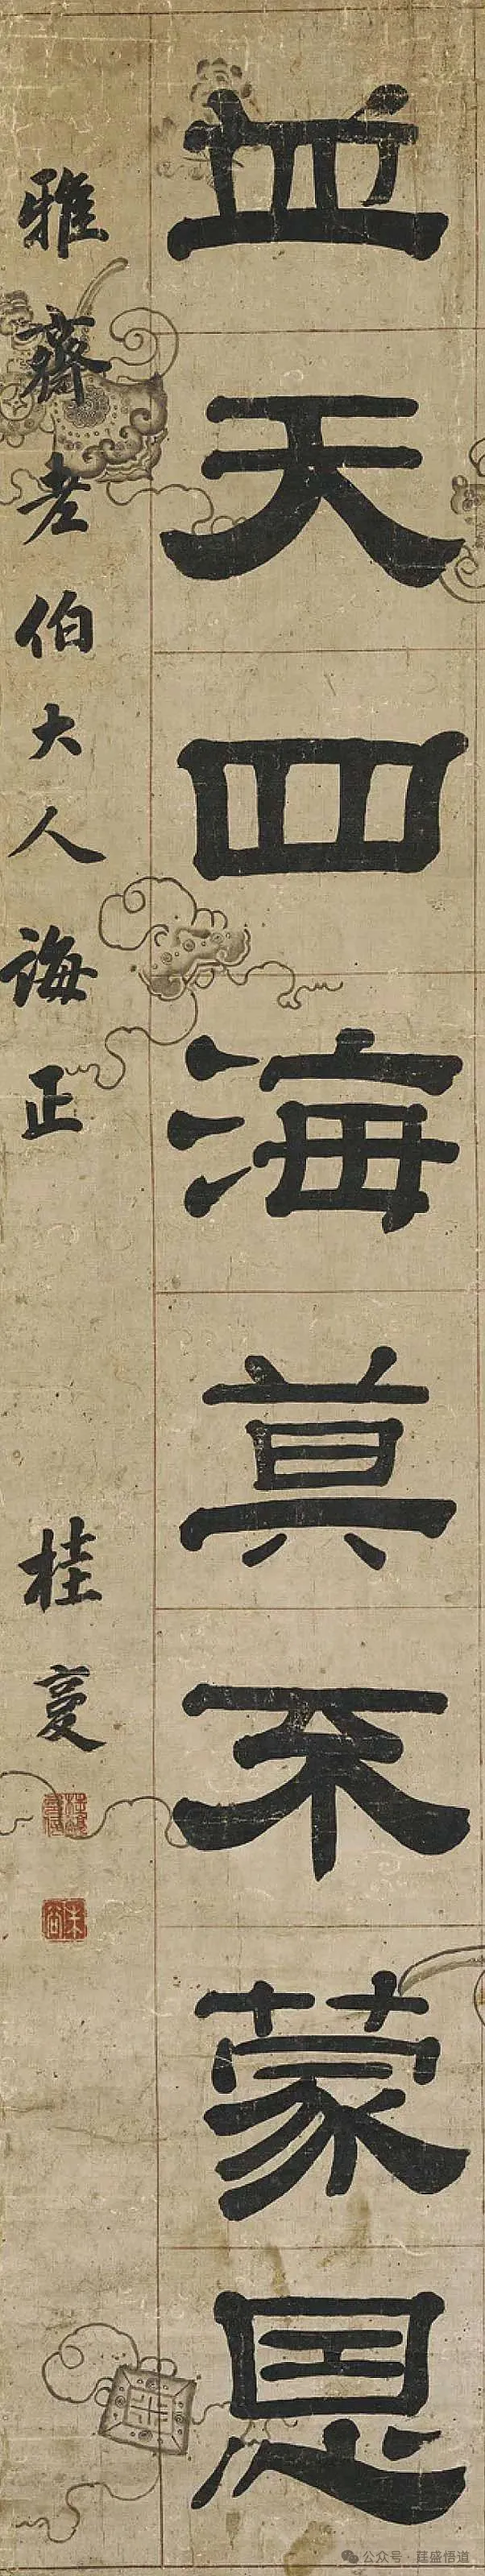 並天四海莫不蒙恩
雅齋老伯大人誨正
桂复
未谷
公众号 · 莛盛悟道